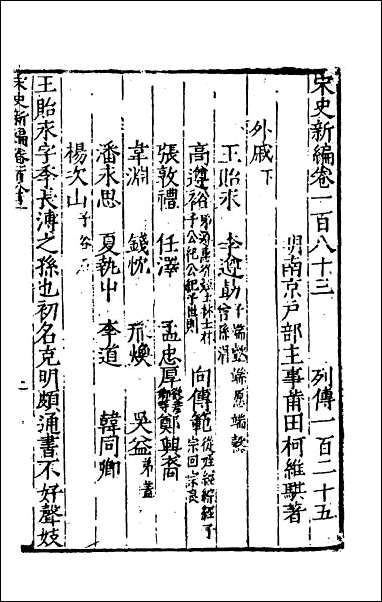 宋史新編卷一百八十三 列傳一百二十五
明南京戶部主事莆田柯維騏著
外戚下
王貽永 李遵勗子端懿 端愿 端慤 曾孫
高遵裕 弟遵惠 從姪士林 士林子公紀 公紀子世則 向傳範從姪經 綜 經子宗回 宗良
張敦禮 任澤 孟忠厚 鄭興裔
韋淵 錢忱 邢煥 吳益弟蓋
潘永思 夏執中 李道 韓同卿
楊次山子谷
王貽永字季長溥之孫也初名克明頗通書不好聲妓